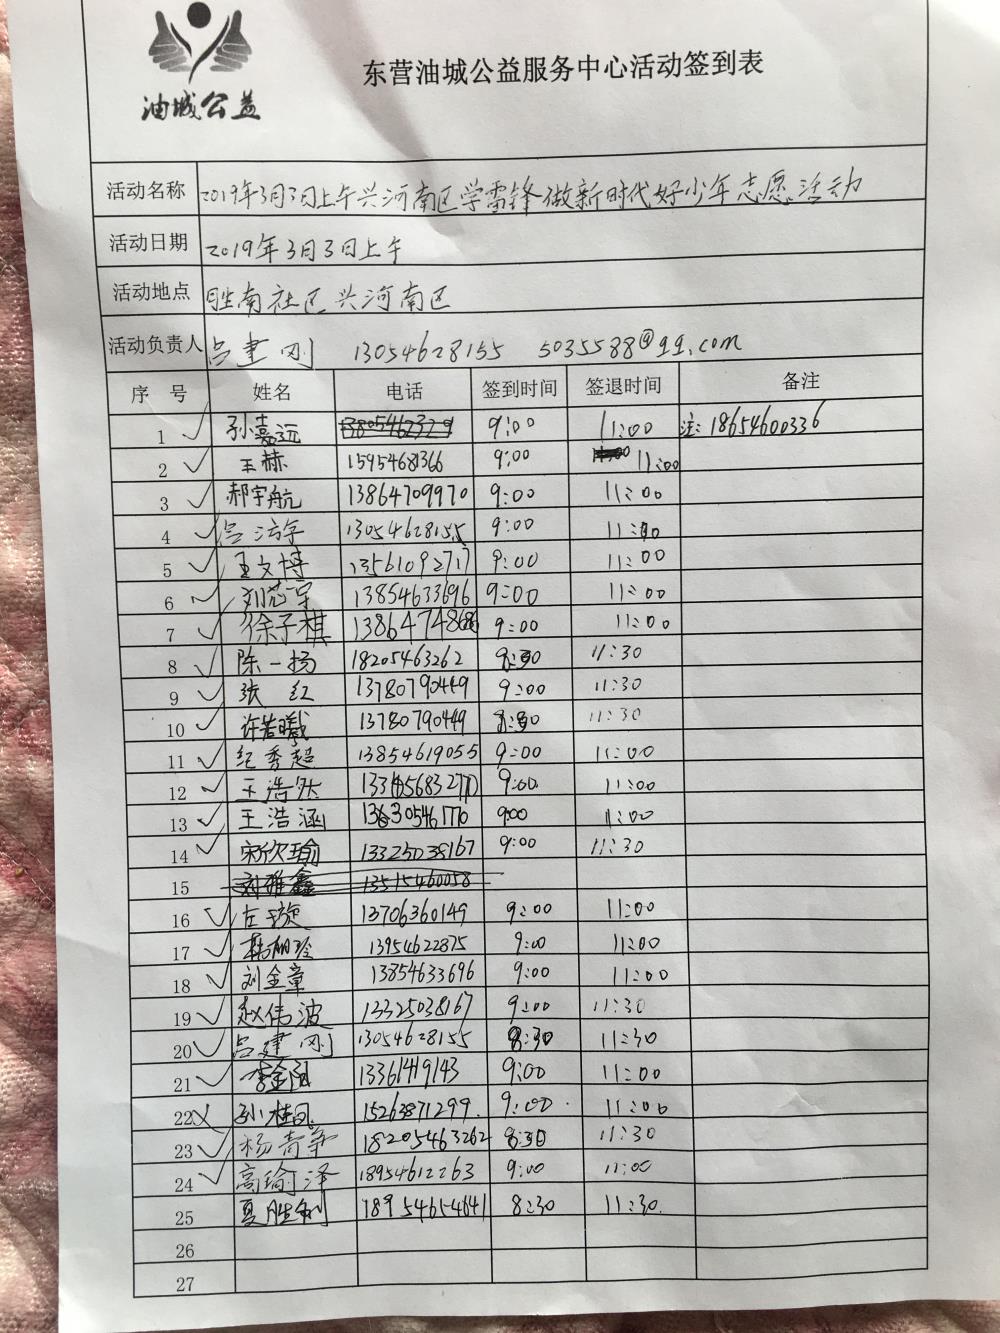 油城公益
东营油城公益服务中心活动签到表
活动名称 2019年3月3日上午兴河南区学雷锋做新时代好少年志愿活动
活动日期 2019年3月3日上午
活动地点 胜南社区兴河南区
活动负责人 吕建刚 13054628155 5035588@qq.com
序号 姓名 电话 签到时间 签退时间 备注
1 孙嘉远 9:00 11:00 注:18654600336
2 王赫 15954681366 9:00 11:00
3 郝宇航 13864709970 9:00 11:00
4 吕 13054628155 9:00 11:00
5 王文博 13561092717 9:00 11:00
6 刘芯宇 13854633696 9:00 11:00
7 徐子祺 9:00 11:00
8 陈一扬 18205463262 8:30 11:30
9 张红 13780790449 9:00 11:30
10 许若曦 13780790449 8:30 11:30
11 纪秀超 13854619055 9:00 11:00
12 王浩然 9:00 11:00
13 王浩涵 13630546770 9:00 11:00
14 宋欣瑜 13325038167 9:00 11:30
15 刘雅鑫 13515460058
16 左璇 13706360149 9:00 11:00
17 13954622875 9:00 11:00
18 刘金章 13854633696 9:00 11:00
19 赵伟波 13325038167 9:00 11:30
20 吕建刚 13054628155 8:30 11:30
21 李金阳 13361419143 9:00 11:00
22 孙桂凤 15263871299. 9:00 11:00
23 杨青 18205463262 8:30 11:30
24 高瑜泽 18954612263 9:00 11:00
25 夏胜利 18954654641 8:30 11:30
26
27